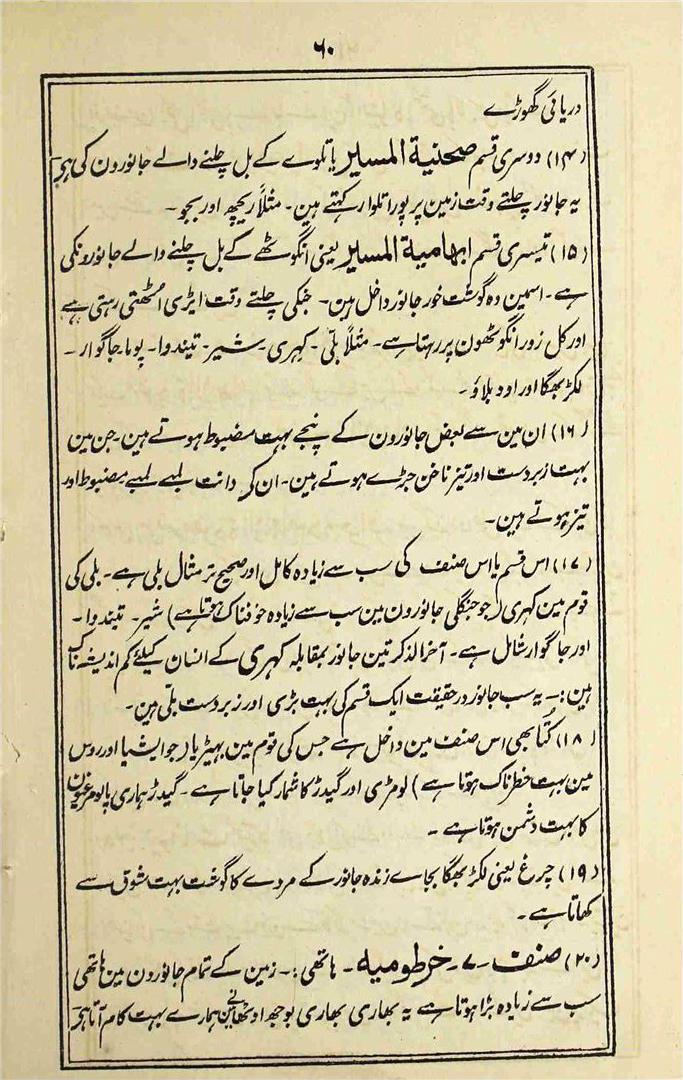 ۶۰
دریائی گھوڑے
(۱۴) دوسری قسم صحنیۃ المسیر یا تلوے کے بل چلنے والے جانورون کی ہے
یہ جانور چلتے وقت زمین پر پورا تلوا رکہتے ہین۔ مثلاً ریچھ اور بجو۔
(۱۵) تیسری قسم ابہامیۃ المسیر یعنی انگوٹھے کے بل چلنے والے جانورونکی
ہے۔ اسمین وہ گوشت خور جانور داخل ہین۔ جنکی چلتے وقت ایڑی اُٹھتی رہتی ہے
اور کل زور انگوٹھون پر رہتا ہے۔ مثلاً بلّی۔ کہری۔ شیر۔ تیندوا۔ پوما۔ جاگوار۔
لکڑ بھگا اور اود بلاؤ۔
(۱۶) ان مین سے بعض جانورون کے پنجے بہت مضبوط ہوتے ہین۔ جن مین
بہت زبردست اور تیز ناخن جڑے ہوتے ہین۔ ان کی دانت لمبے لمبے مضبوط اور
تیز ہوتے ہین۔
(۱۷) اس قسم یا اس صنف کی سب سے زیادہ کامل اور صحیح تر مثال بلی ہے۔ بلی کی
قوم مین کہری (جو جنگلی جانورون مین سب سے زیادہ خوفناک ہوتا ہے) شیر۔ تیندوا۔
اور جاگوار شامل ہے۔ آخر الذکر تین جانور بمقابلہ کہری کے انسان کیلئے کم اندیشہ ناک
ہین:۔ یہ سب جانور درحقیقت ایک قسم کی بہت بڑی اور زبردست بلی ہین۔
(۱۸) کُتا بھی اس صنف مین داخل ہے جس کی قوم مین بھیڑیا (جو ایشیا اور روس
مین بہت خطرناک ہوتا ہے) لومڑی اور گیدڑ کا شمار کیا جاتا ہے۔ گیدڑ ہماری پالو مرغیون
کا بہت دشمن ہوتا ہے۔
(۱۹) چرغ یعنی لکڑ بھگا بجاے زندہ جانور کے مردے کا گوشت بہت شوق سے
کھاتا ہے۔
(۲۰) صنف۔ ۷۔ خرطومیہ۔ ہاتھی:۔ زمین کے تمام جانورون مین ہاتھی
سب سے زیادہ بڑا ہوتا ہے یہ بھاری بھاری بوجھ اوٹھانے مین ہمارے بہت کام آتا ہے